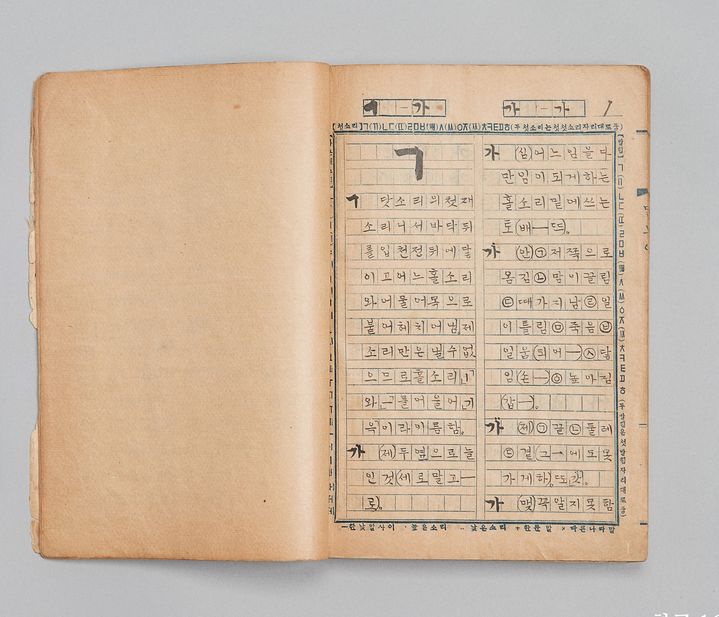 ㄱ—가
가—가
1
【첫소리】ㄱ(ㄲ)ㄴㄷ(ㄸ)ㄹㅁㅂ(ㅃ)ㅅ(ㅆ)ㅇㅈ(ㅉ)ㅊㅋㅌㅍㅎ
ㄱ
ㄱ 닷소리의첫재
소리니서바닥뒤
를입천전뒤에닿
이고어느홀소리
와어물어목으로
불어헤치어냄제
소리만은낼수없
으므로홀소리「ㅣ」
와「ㅡ」를어울어「기
윽」이라이름함。
가 (제)두옆으로늘
인것(세로말고—
로)。
가 (심)어느임을다
만임이되게하는
홀소리밑에쓰는
토(배—뜨)。
가 (안)㉠저쪽으로
옴김㉡맘이끌림
㉢때가 남㉣일
이틀림㉤죽음㉥
일움(희머—)㉦당
임(손—)㉧높아짐
(값—)。
가 (제)㉠끝㉡둘레
㉢곁(그—에도못
가게하)。또갓。
가 (맺)꼭알지못함
—한낱말사이 ·높은소리 ··낮은소리 +한문말 ×다른나라말